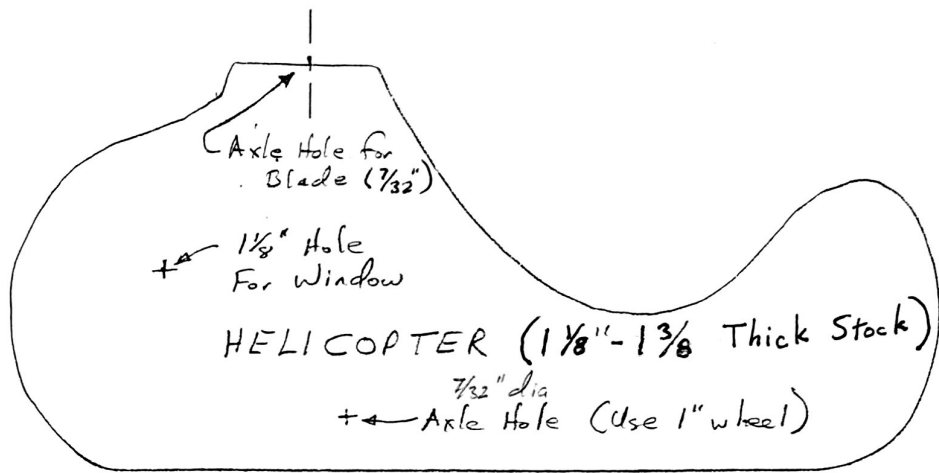 Axle Hole for
Blade (7/32")
1 1/8" Hole
For Window
HELICOPTER (1 1/8" - 1 3/8 Thick Stock)
7/32" dia
Axle Hole (Use 1" wheel)